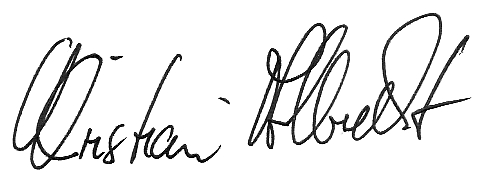 Christian Albrecht